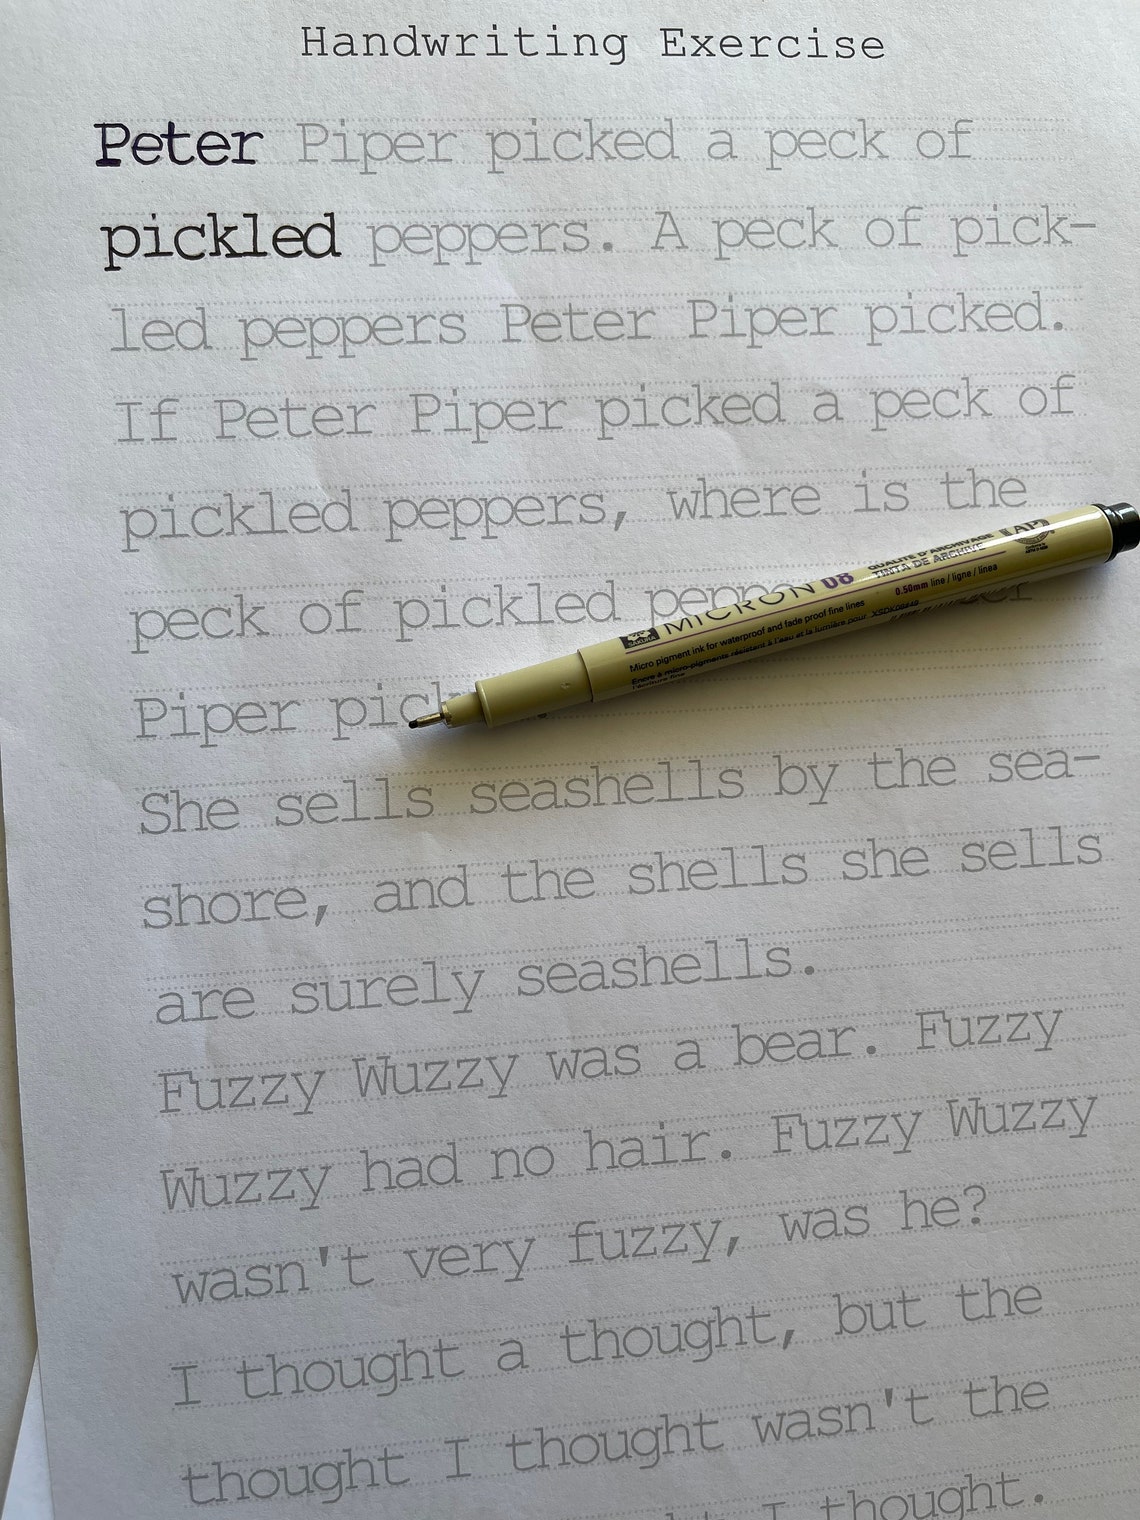 Handwriting Exercise
Peter Piper picked a peck of
pickled peppers. A peck of pick-
led peppers Peter Piper picked.
If Peter Piper picked a peck of
pickled peppers, where is the
peck of pickled
Piper
She sells seashells by the sea-
shore, and the shells she sells
are surely seashells.
Fuzzy Wuzzy was a bear. Fuzzy
Wuzzy had no hair. Fuzzy Wuzzy
wasn't very fuzzy, was he?
I thought a thought, but the
thought I thought wasn't the
I thought.
SAKURA MICRON 08
QUALITÉ D'ARCHIVAGE
TINTA DE ARCHIVE
AP
0.50mm line / ligne / línea
Micro pigment ink for waterproof and fade proof fine lines
XSDK08#49
Encre à micro-pigments résistant à l'eau et la lumière pour
l'écriture fine